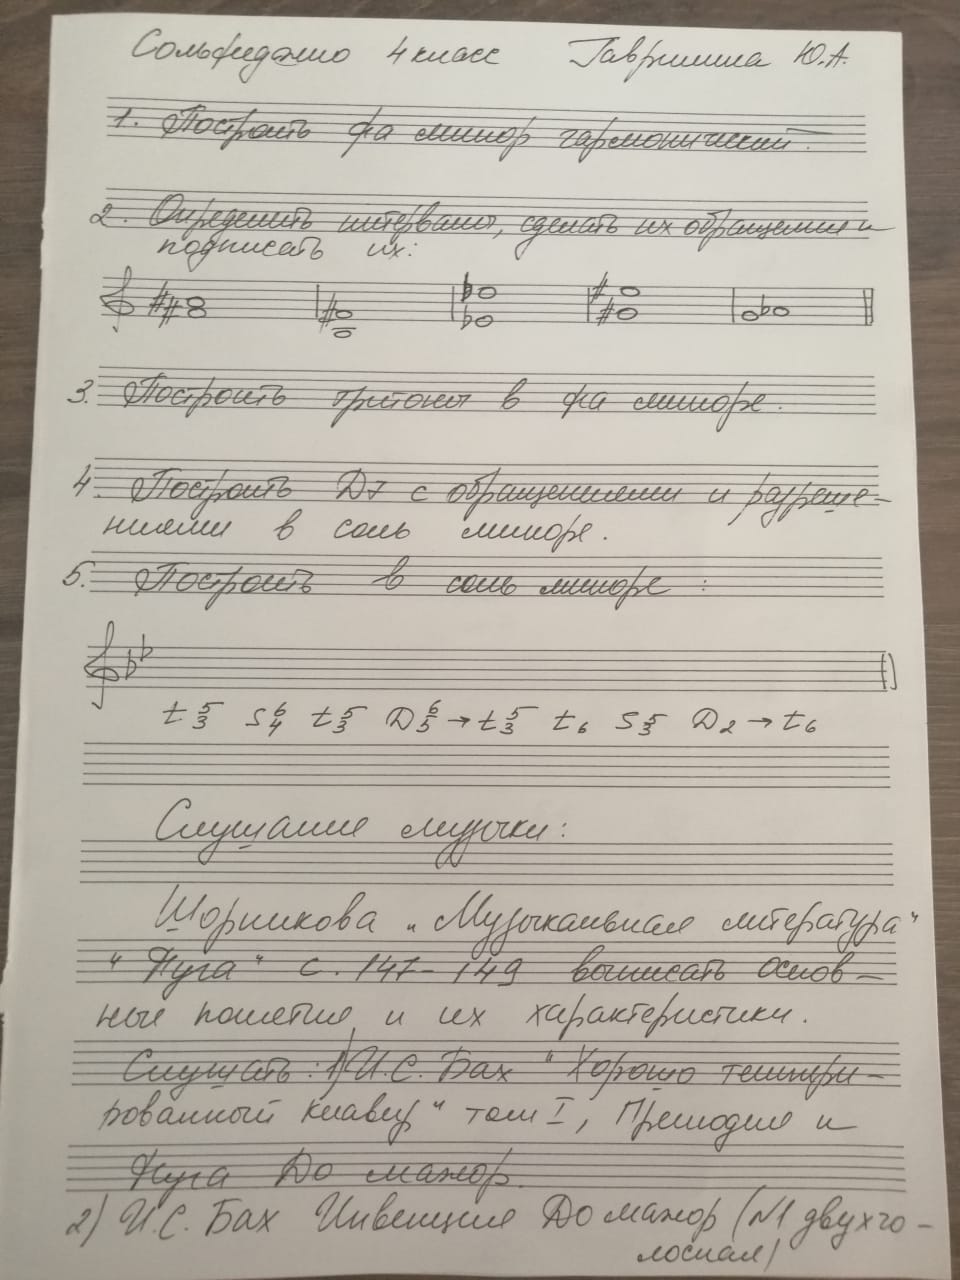 Сольфеджио 4 класс Гаврилина Ю.А.
1. Построить фа минор гармонический.
2. Определить интервалы, сделать их обращения и
подписать их:
3. Построить тритоны в фа миноре.
4. Построить D7 с обращениями и разреше-
ниями в соль миноре.
5. Построить в соль миноре:
t 5/3 s 6/4 t 5/3 D 6/5 → t 5/3 t6 s 5/3 D2 → t6
Слушание музыки:
Шорникова „Музыкальная литература"
"Фуга" с. 147-149 выписать основ-
ные понятия и их характеристики.
Слушать: 1) И.С. Бах "Хорошо темпери-
рованный клавир" том I, Прелюдия и
Фуга До мажор.
2) И.С. Бах Инвенция До мажор (№1 двухго-
лосная)